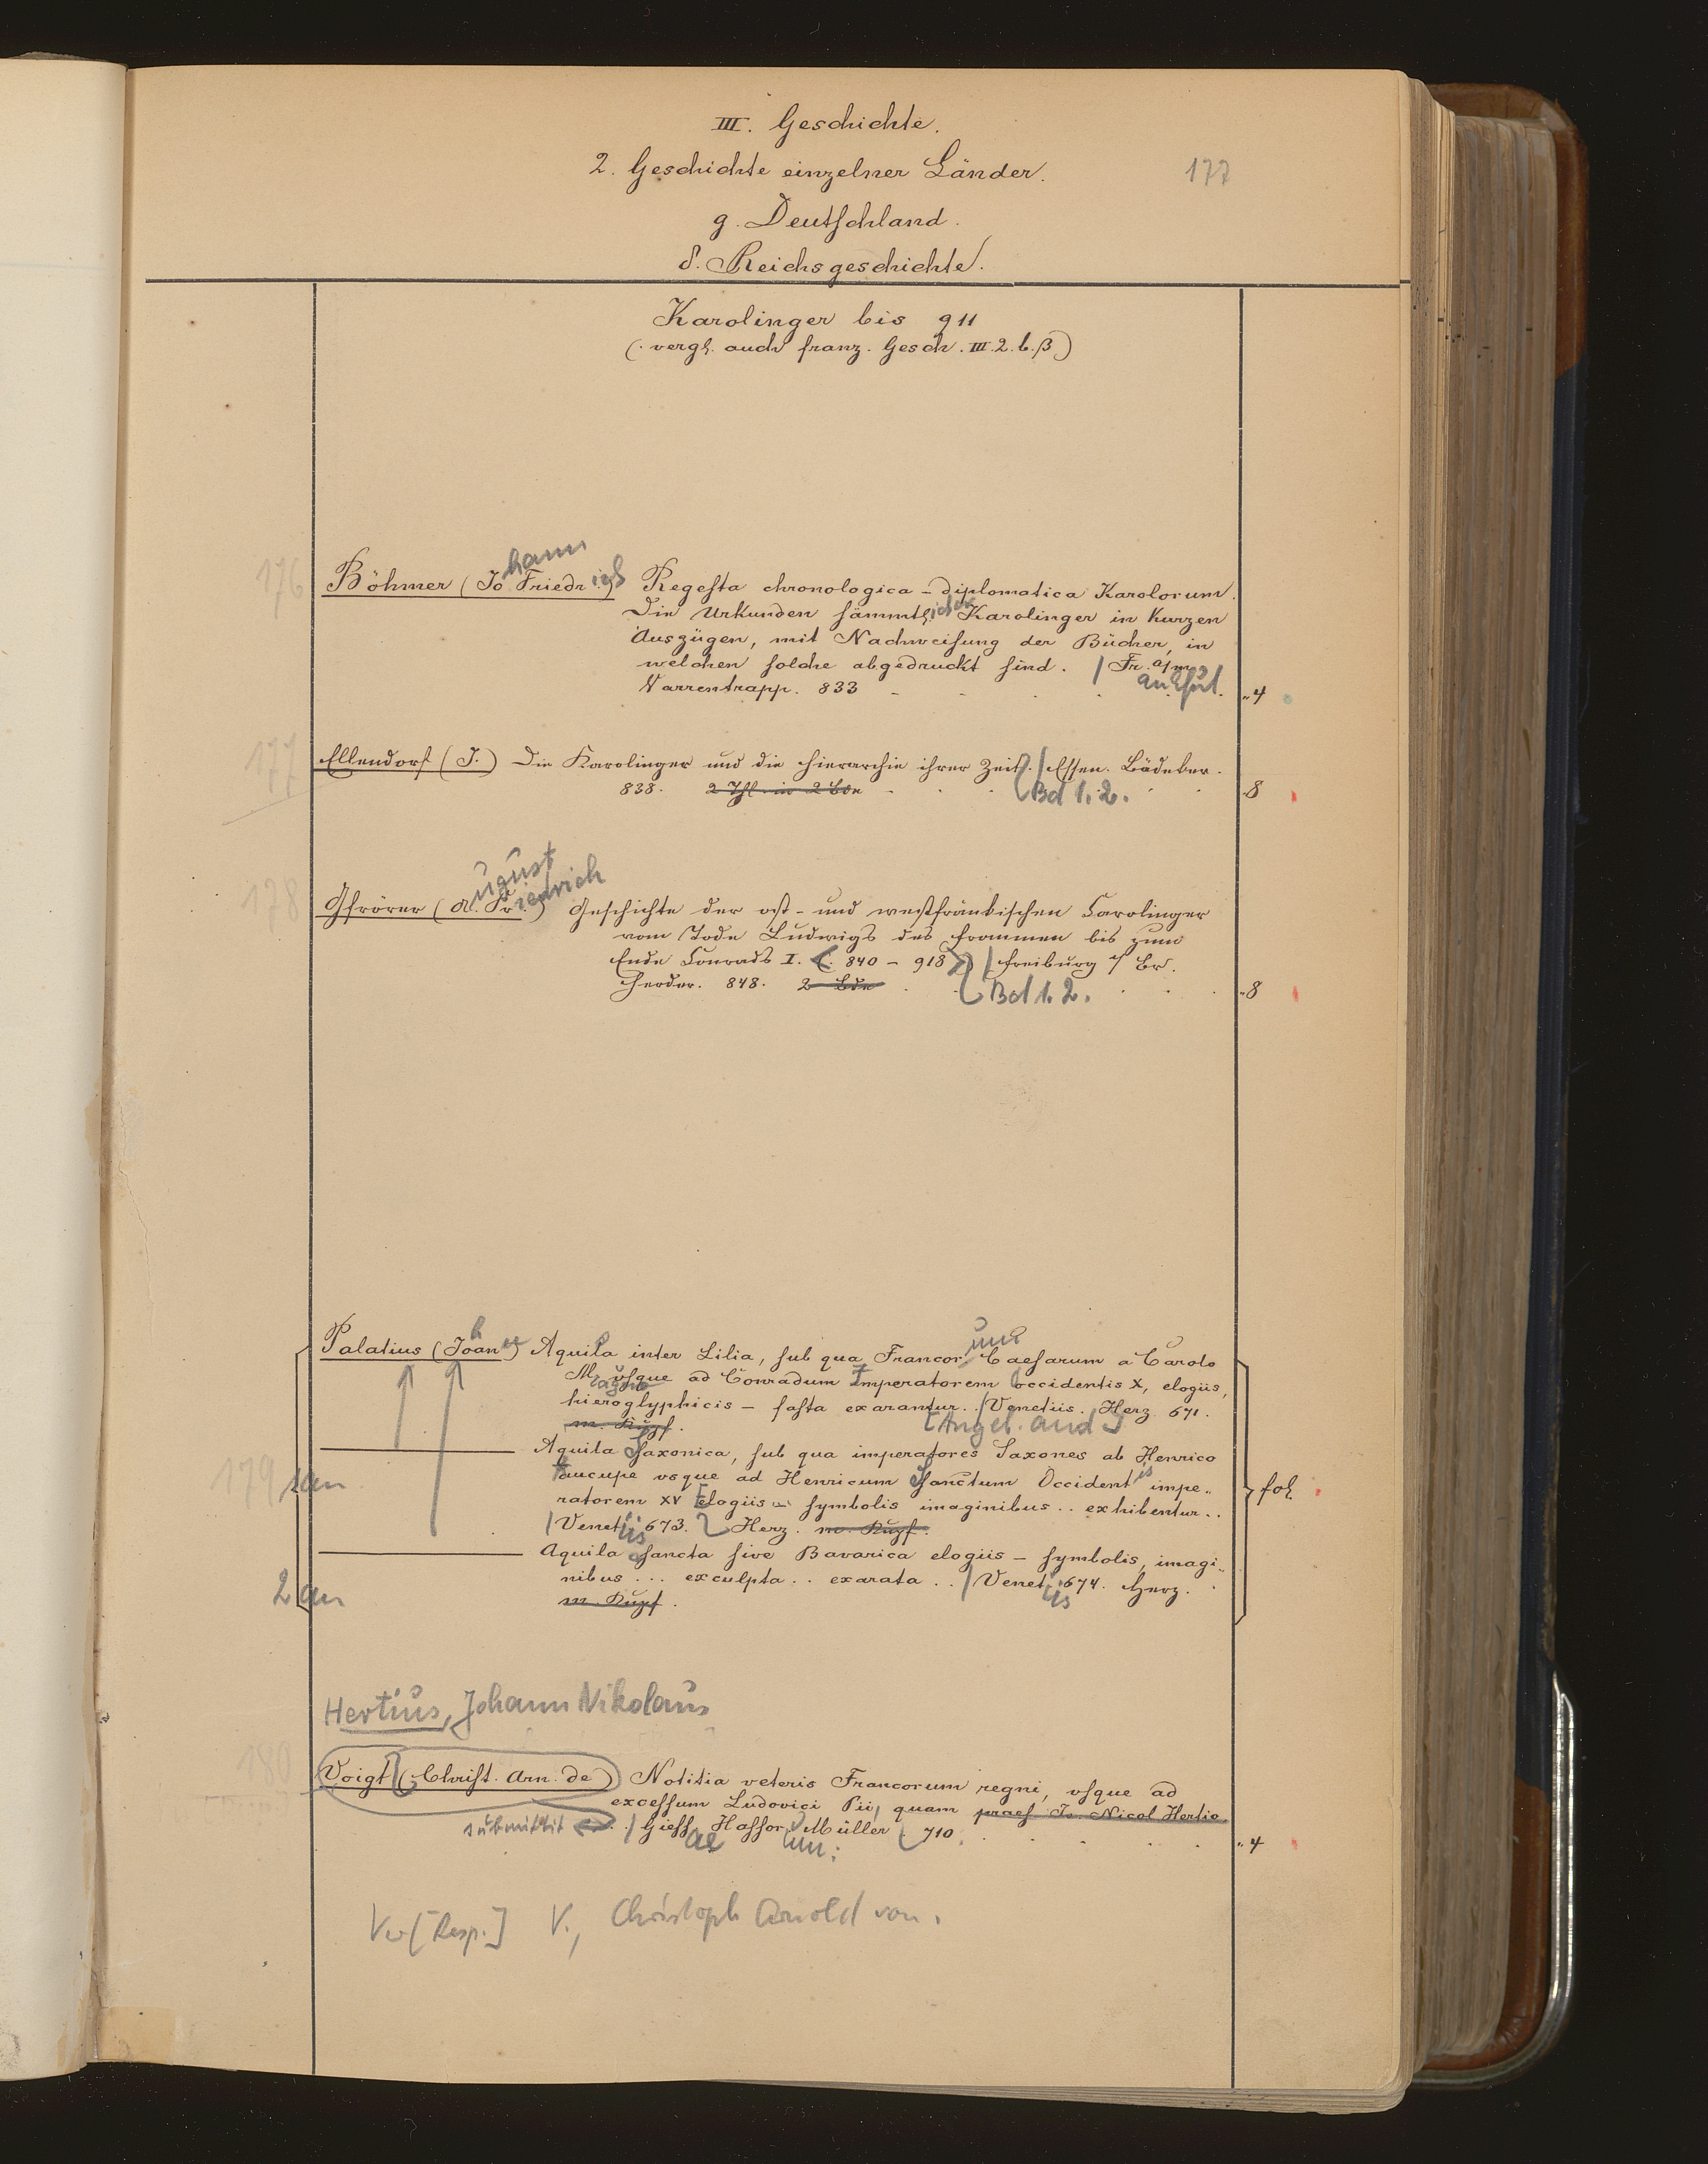 III. Geschichte.
2. Geschichte einzelner Länder.
177
g. Deutschland.
δ. Reichsgeschichte.
Karolinger bis 911
(vergl. auch franz. Gesch. III. 2. b. β)
176
Böhmer (Johann Friedrich) Regesta chronologica-diplomatica Karolorum.
Die Urkunden sämmtlicher Karolinger in kurzen
Auszügen, mit Nachweisung der Bücher, in
welchen solche abgedruckt sind. / Fr. a/m
ankfurt.
Varrentrapp. 833
"4
177
Ellendorf (J.) Die Karolinger und die Hierarchie ihrer Zeit. / Essen. Bädeker.
838. 2 Thl. in 2 Bde
Bd 1. 2.
8
178
Gfrörer (August Friedrich) Geschichte der ost- und westfränkischen Carolinger
vom Tode Ludwigs des Frommen bis zum
Ende Conrads I. (840 - 918) / Freiburg i/ Br.
Herder. 848. 2 Bde
Bd 1. 2.
"8
Palatius (Johann) Aquila inter Lilia, sub qua Francorum Caesarum a Carolo
Magno usque ad Conradum Imperatorem occidentis X, elogiis,
hieroglyphicis - fasta exarantur. / Venetiis. Herz. 671.
m. Kupf.
[Angeb. and]
179
Aquila Saxonica, sub qua imperatores Saxones ab Henrico
aucupe vsque ad Henricum sanctum Occidentis impe-
ratorem XV elogiis symbolis imaginibus .. exhibentur ..
/ Venetiis 673. Herz. m. Kupf.
fol.
1 an
Aquila sancta sive Bavarica elogiis - symbolis, imagi-
nibus ... exculpta .. exarata .. / Venetiis 674. Herz.
m. Kupf.
2 an
Hertius, Johann Nikolaus
180
Voigt (Christ. Arn. de) Notitia veteris Francorum regni, vsque ad
excessum Ludovici Pii, quam praes. Jo. Nicol. Hertio
submittit .. / Giessae Hassorum: Müller 710.
"4
Ver[Resp.] V., Christoph Arnold von.